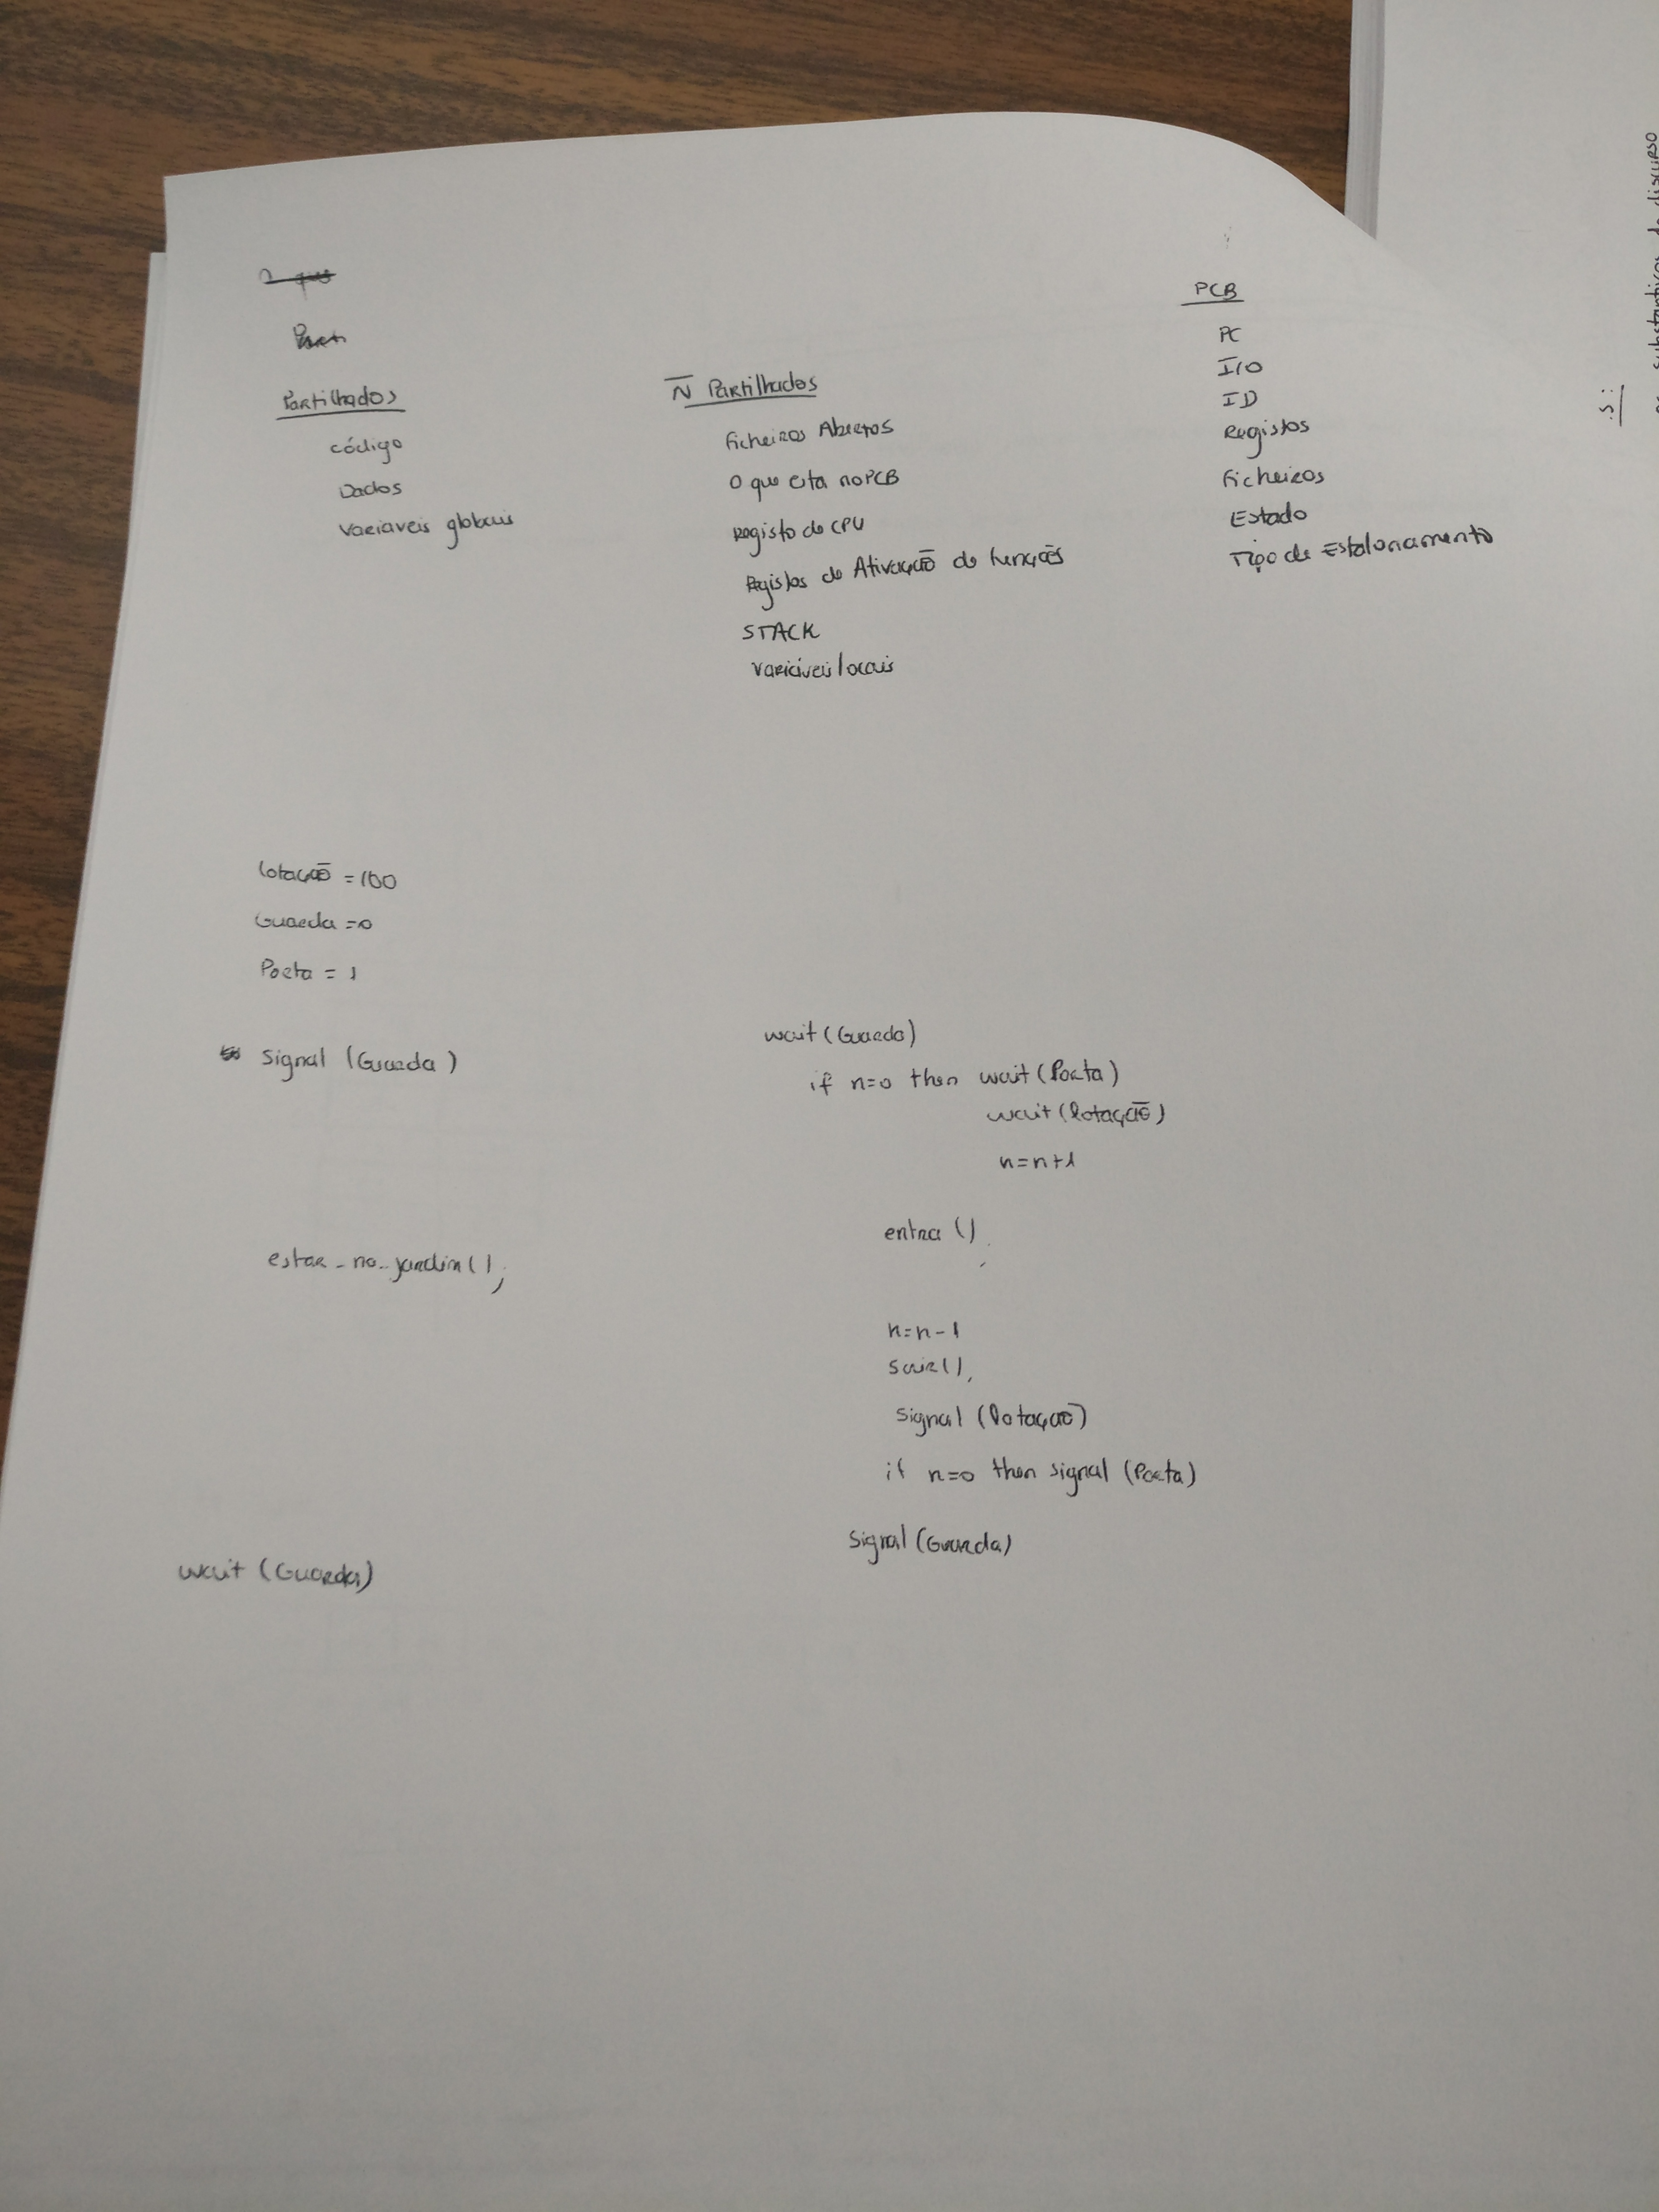 Partilhados
código
Dados
Variaveis globais
N̄ Partilhados
Ficheiros Abertos
O que esta no PCB
Registo do CPU
Registos de Ativação de funções
STACK
Variáveis locais
PCB
PC
I/O
ID
Registos
Ficheiros
Estado
Tipo de Estalonamento
substantivos do discurso
lotação = 100
Guarda = 0
Porta = 1
Signal (Guarda)
estar_no_jardim();
wait (Guarda)
wait (Guarda)
if n=0 then wait (Porta)
wait (lotação)
n=n+1
entra ();
n=n-1
sair();
signal (lotação)
if n=0 then signal (Porta)
Signal (Guarda)